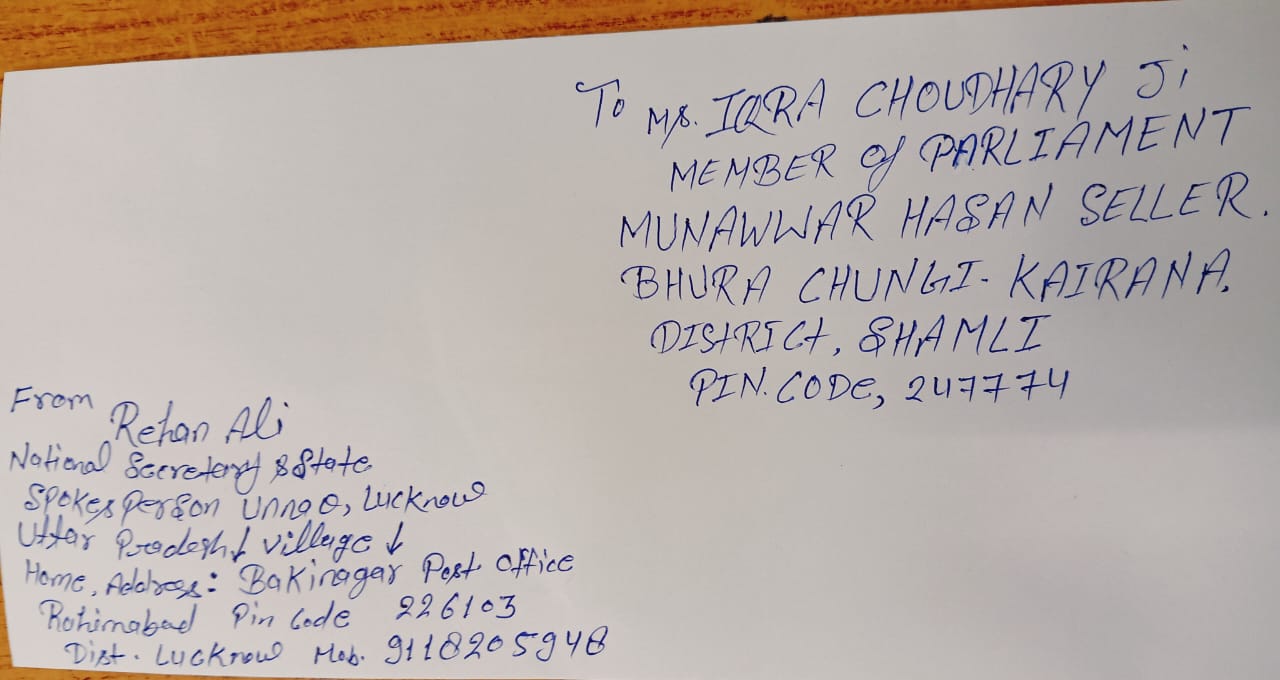 To Ms. IQRA CHOUDHARY Ji
MEMBER Of PARLIAMENT
MUNAWWAR HASAN SELLER.
BHURA CHUNGI- KAIRANA.
DISTRICT, SHAMLI
PIN. CODE, 247774
From
Rehan Ali
National Secretary & State
Spokes person Unnao, Lucknow
Uttar Pradesh ↓ village ↓
Home, Address: Bakinagar Post office
Rahimabad Pin Code 226103
Dist. Lucknow Mob. 9118205948